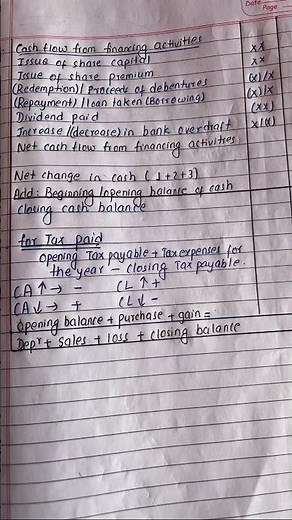 Date
Page
Cash flow from financing activities
Issue of share capital xx
Issue of share premium xx
(Redemption)/Proceeds of debentures (x)/x
(Repayment)/loan taken (Borrowing) (x)/x
Dividend paid (xx)
Increase/(decrease) in bank overdraft x/(x)
Net cash flow from financing activities
Net change in cash (1+2+3)
Add: Beginning/opening balance of cash
closing cash balance
for Tax paid
opening Tax payable + Tax expenses for
the year - closing Tax payable.
CA ↑ → - CL ↑ +
CA ↓ → + CL ↓ -
Opening balance + purchase + gain =
Depr + sales + loss + closing balance